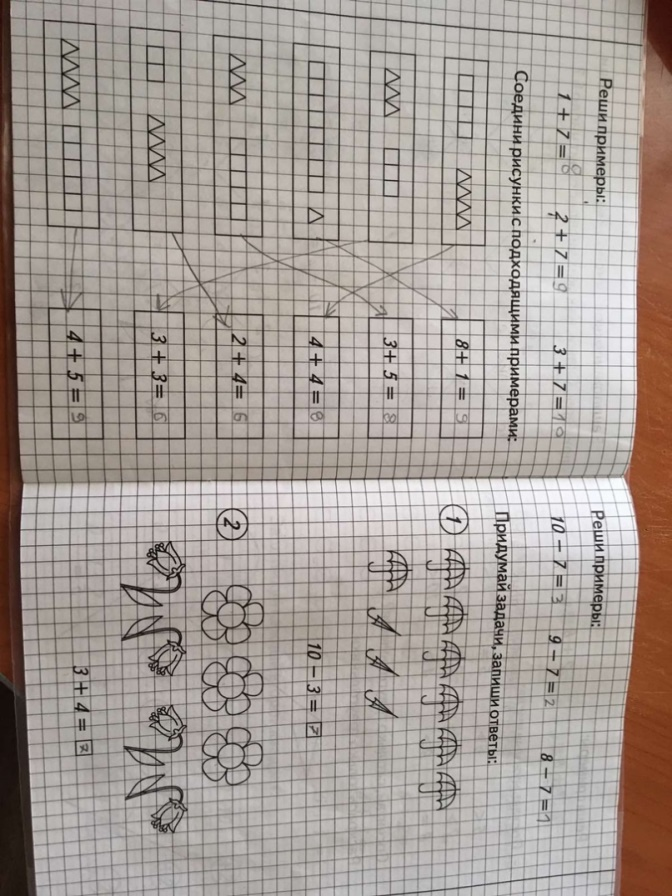 Реши примеры:
1 + 7 = 8 2 + 7 = 9 3 + 7 = 10
Соедини рисунки с подходящими примерами:
8 + 1 = 9
3 + 5 = 8
4 + 4 = 8
2 + 4 = 6
3 + 3 = 6
4 + 5 = 9
Реши примеры:
10 − 7 = 3 9 − 7 = 2 8 − 7 = 1
Придумай задачи, запиши ответы:
1
10 − 3 = 7
2
3 + 4 = 7